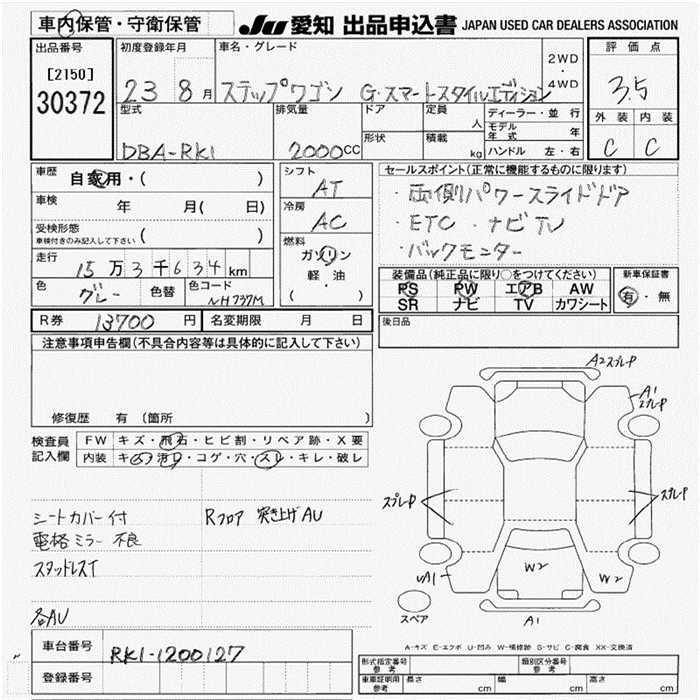 車内保管・守衛保管 JU 愛知 出品申込書 JAPAN USED CAR DEALERS ASSOCIATION
出品番号 初度登録年月 車名・グレード 2WD・4WD 評価点
[2150]
30372
23 8月 ステップワゴン G・スマートスタイルエディション 3.5
型式 排気量 ドア 定員 人 ディーラー・並行 外装 内装
モデル年式 年
DBA-RK1 2000cc 形状 積載 kg ハンドル 左・右 C C
車歴 自家用・( ) シフト AT セールスポイント(正常に機能するものに限ります)
車検 年 月( 日) 冷房 AC ・両側パワースライドドア
受検形態 ( ) ・ETC ・ナビTV
車検付きのみ記入して下さい
燃料 ガソリン ・バックモニター
走行 15万3千634km 軽・油 装備品(純正品に限り○をつけてください) 新車保証書
色 グレー 色替 色コード NH737M ( ) PS PW エアB AW 有・無
SR ナビ TV カワシート
R券 13700円 名変期限 月 日 後日品
注意事項申告欄(不具合内容等は具体的に記入して下さい)
修復歴 有 (箇所 )
検査員記入欄 FW キズ・飛石・ヒビ割・リペア跡・X要
内装 キズ・汚レ・コゲ・穴・スレ・キレ・破レ
シートカバー付 Rフロア 突き上げAU
電格ミラー不良
スタッドレスT
各AU
車台番号 RK1-1200127
登録番号
A2スプレP
A1
スプレP
スプレP
スプレP
UA1
W2
W2
スペア
A1
A-キズ E-エクボ U-凹み W-補修跡 S-サビ C-腐食 XX-交換済
形式指定番号 参考 類別区分番号 参考
車庫証明用 参考 長さ cm 幅 cm 高さ cm